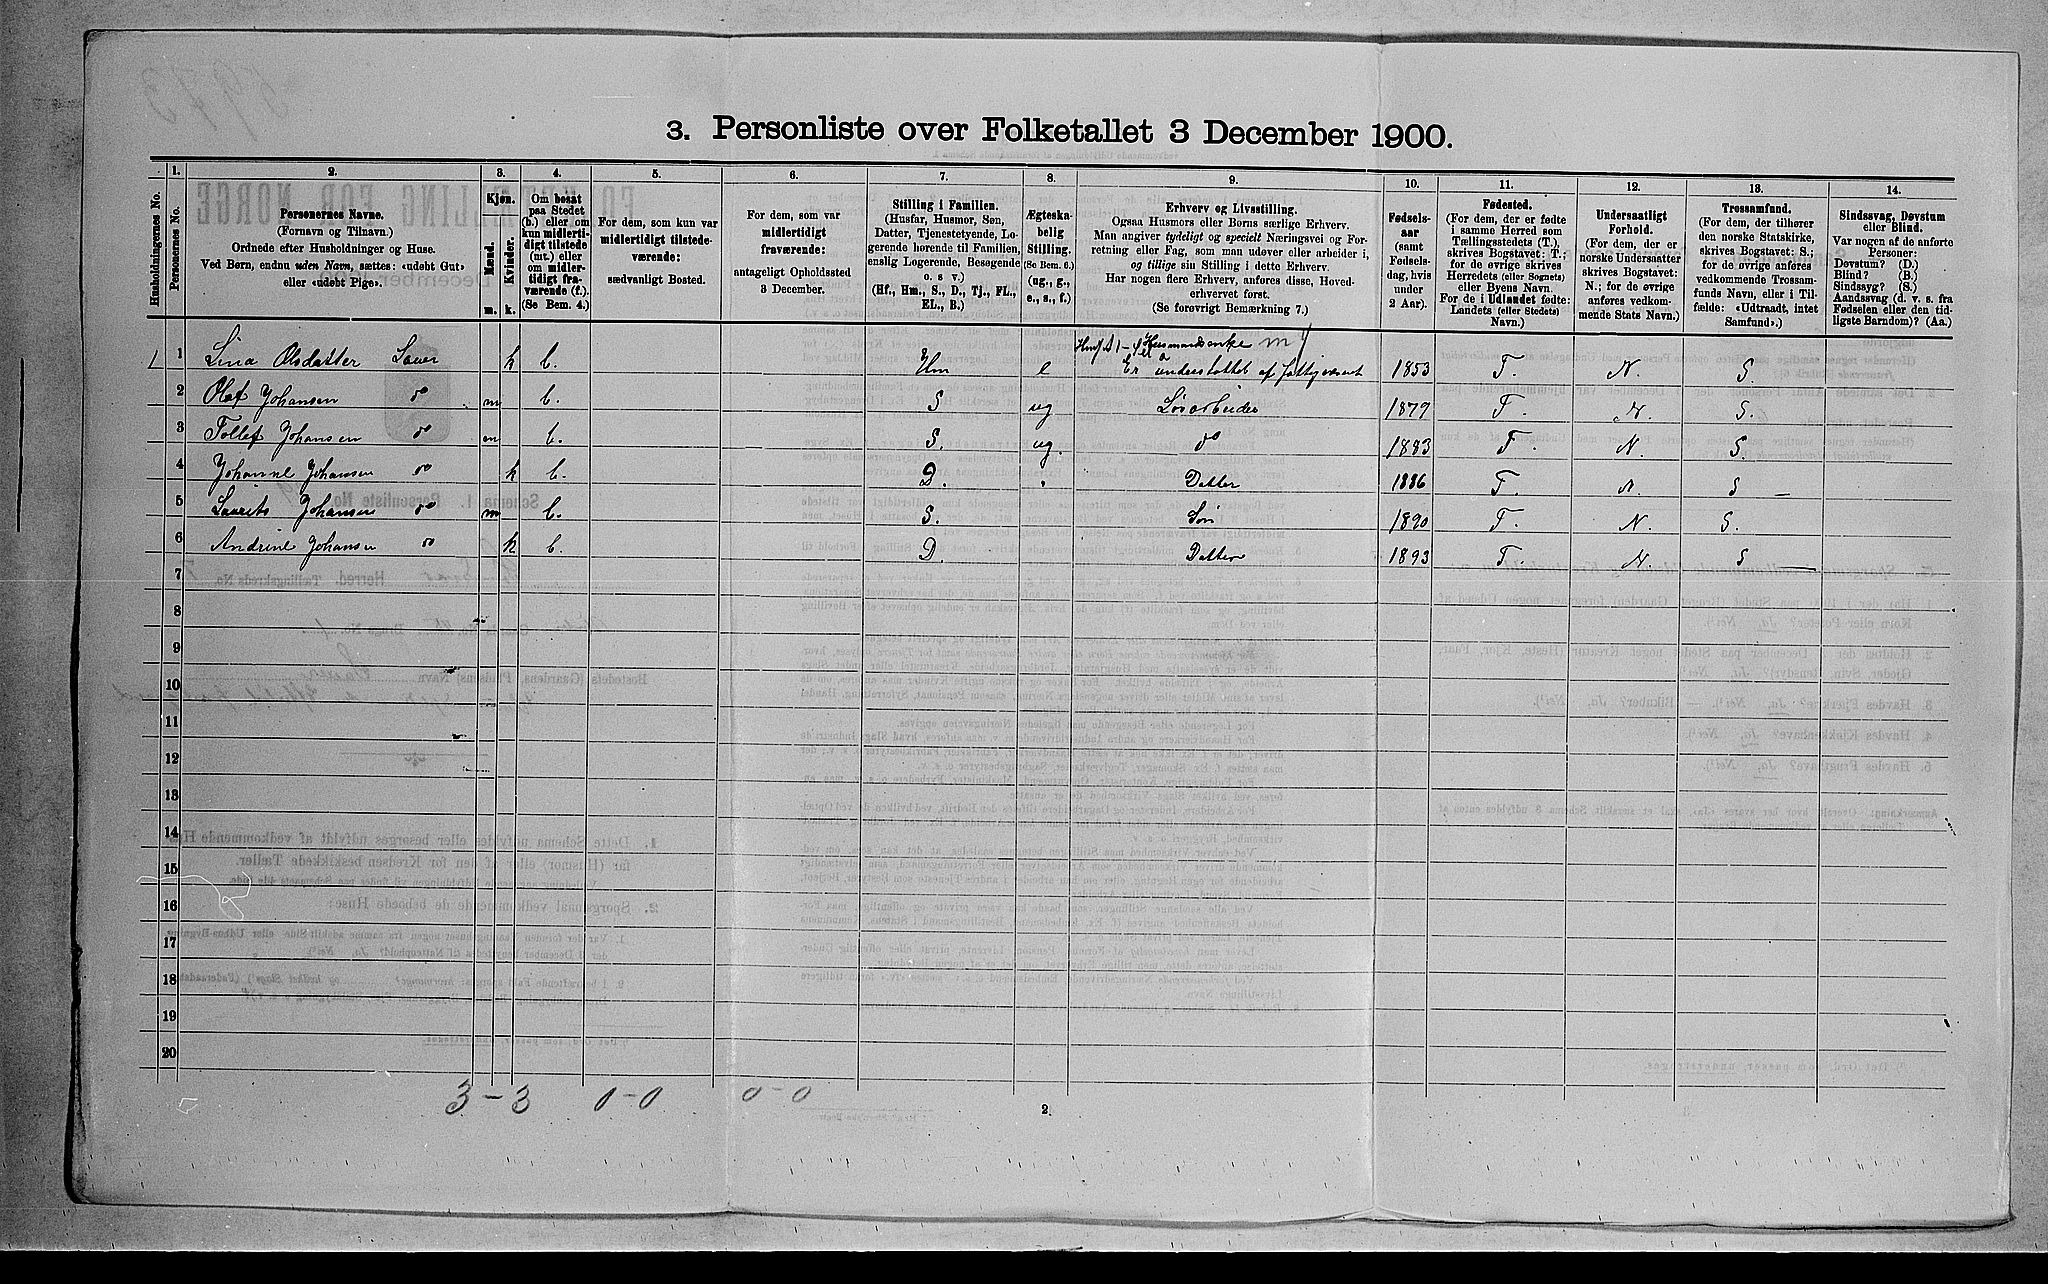 3. Personliste over Folketallet 3 December 1900.
1. 2. 3. 4. 5. 6. 7. 8. 9. 10. 11. 12. 13. 14.
Husholdningernes No.
Personernes No.
Personernes Navne.
(Fornavn og Tilnavn.)
Ordnede efter Husholdninger og Huse.
Ved Børn, endnu uden Navn, sættes: «udøbt Gut»
eller «udøbt Pige».
Kjøn.
Mænd.
Kvinder.
m. k.
Om bosat
paa Stedet
(b.) eller om
kun midlerti-
digt tilstede
(mt.) eller
om midler-
tidigt fra-
værende (f.).
(Se Bem. 4.)
For dem, som kun var
midlertidigt tilstede-
værende:
sædvanligt Bosted.
For dem, som var
midlertidigt
fraværende:
antageligt Opholdssted
3 December.
Stilling i Familien.
(Husfar, Husmor, Søn,
Datter, Tjenestetyende, Lo-
gerende hørende til Familien,
enslig Logerende, Besøgende
o. s v.)
(Hf., Hm., S., D., Tj., FL.,
EL., B.)
Ægteska-
belig
Stilling.
(Se Bem. 6.)
(ug., g.,
e., s., f.)
Erhverv og Livsstilling.
Ogsaa Husmors eller Børns særlige Erhverv.
Man angiver tydeligt og specielt Næringsvei og For-
retning eller Fag, som man udøver eller arbeider i,
og tillige sin Stilling i dette Erhverv.
Har nogen flere Erhverv, anføres disse, Hoved-
erhvervet først.
(Se forøvrigt Bemærkning 7.)
Fødsels-
aar
(samt
Fødsels-
dag, hvis
under
2 Aar).
Fødested.
(For dem, der er fødte
i samme Herred som
Tællingsstedets (T.),
skrives Bogstavet: T.;
for de øvrige skrives
Herredets (eller Sognets)
eller Byens Navn.
For de i Udlandet fødte:
Landets (eller Stedets)
Navn.)
Undersaatligt
Forhold.
(For dem, der er
norske Undersaatter
skrives Bogstavet:
N.; for de øvrige
anføres vedkom-
mende Stats Navn.)
Trossamfund.
(For dem, der tilhører
den norske Statskirke,
skrives Bogstavet: S.;
for de øvrige anføres
vedkommende Trossam-
funds Navn, eller i Til-
fælde: «Udtraadt, intet
Samfund».)
Sindssvag, Døvstum
eller Blind.
Var nogen af de anførte
Personer:
Døvstum? (D.)
Blind? (B.)
Sindssyg? (S.)
Aandssvag (d. v. s. fra
Fødselen eller den tid-
ligste Barndom)? (Aa.)
Husmandsenke
1 1 Lina Olsdatter Sauer k b. Hm e understøttet af 1853 T. N. S.
2 Olaf Johansen do m b. S ug Løsarbeider 1879 T. N. S.
3 Tollef Johansen do m b. S. ug. do 1883 T. N. S.
4 Johanne Johansen do k b. D. Datter 1886 T. N. S
5 Laurits Johansen do m b. S. Søn 1890 T. N. S.
6 Andrine Johansen do k b. D. Datter 1893 T. N. S
7
8
9
10
11
12
13
14
15
16
17
18
19
20
3 - 3 0 - 0 0 - 0
2